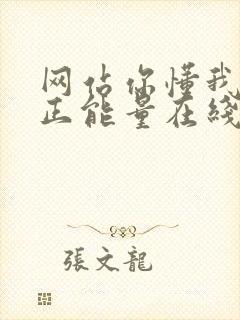 网站你懂我
正能量在綫
張文龍